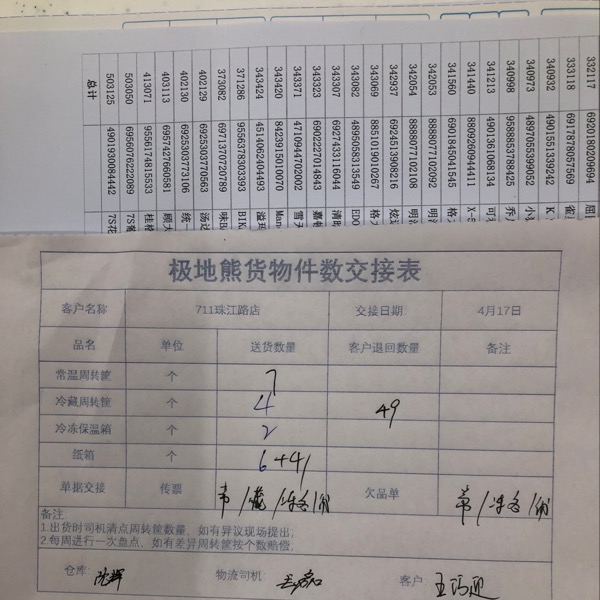 总计
503125 4901930084442 7S花
503050 6956076222089 7S葡
413071 9556174815533 桂格
403113 6957427660581 顾大
402130 6925303773106 统一
402129 6925303770563 汤达
373082 6971370720789 味B
371286 9556378303393 BIKA
343424 4514062404493 溢珏
343420 8423915010070 Man
343371 4710944702002 雪天
343323 6902227014843 嘉顿
343307 6927433116044 清旺
343082 4895058313549 EDO
343069 8851019010267 格力
342937 6924513908216 炫迈
342054 8888077102108 明治
342053 8888077102092 明治
341560 6901845041545 格力
341440 8809260944411 X-5
341213 4901361068134 可
340998 9588853788425 乔
340973 4897055399052 小
340932 4901551339242 K
333118 6917878057569 雀
332117 6920180209694 屈
极地熊货物件数交接表
客户名称 711珠江路店 交接日期 4月17日
品名 单位 送货数量 客户退回数量 备注
常温周转筐 个 7
冷藏周转筐 个 4 49
冷冻保温箱 个 2
纸箱 个 6+41
单据交接 传票 欠品单
备注
1.出货时司机清点周转筐数量，如有异议现场提出；
2.每周进行一次盘点，如有差异周转筐按个数赔偿。
仓库: 沈辉 物流司机 客户 王巧迎